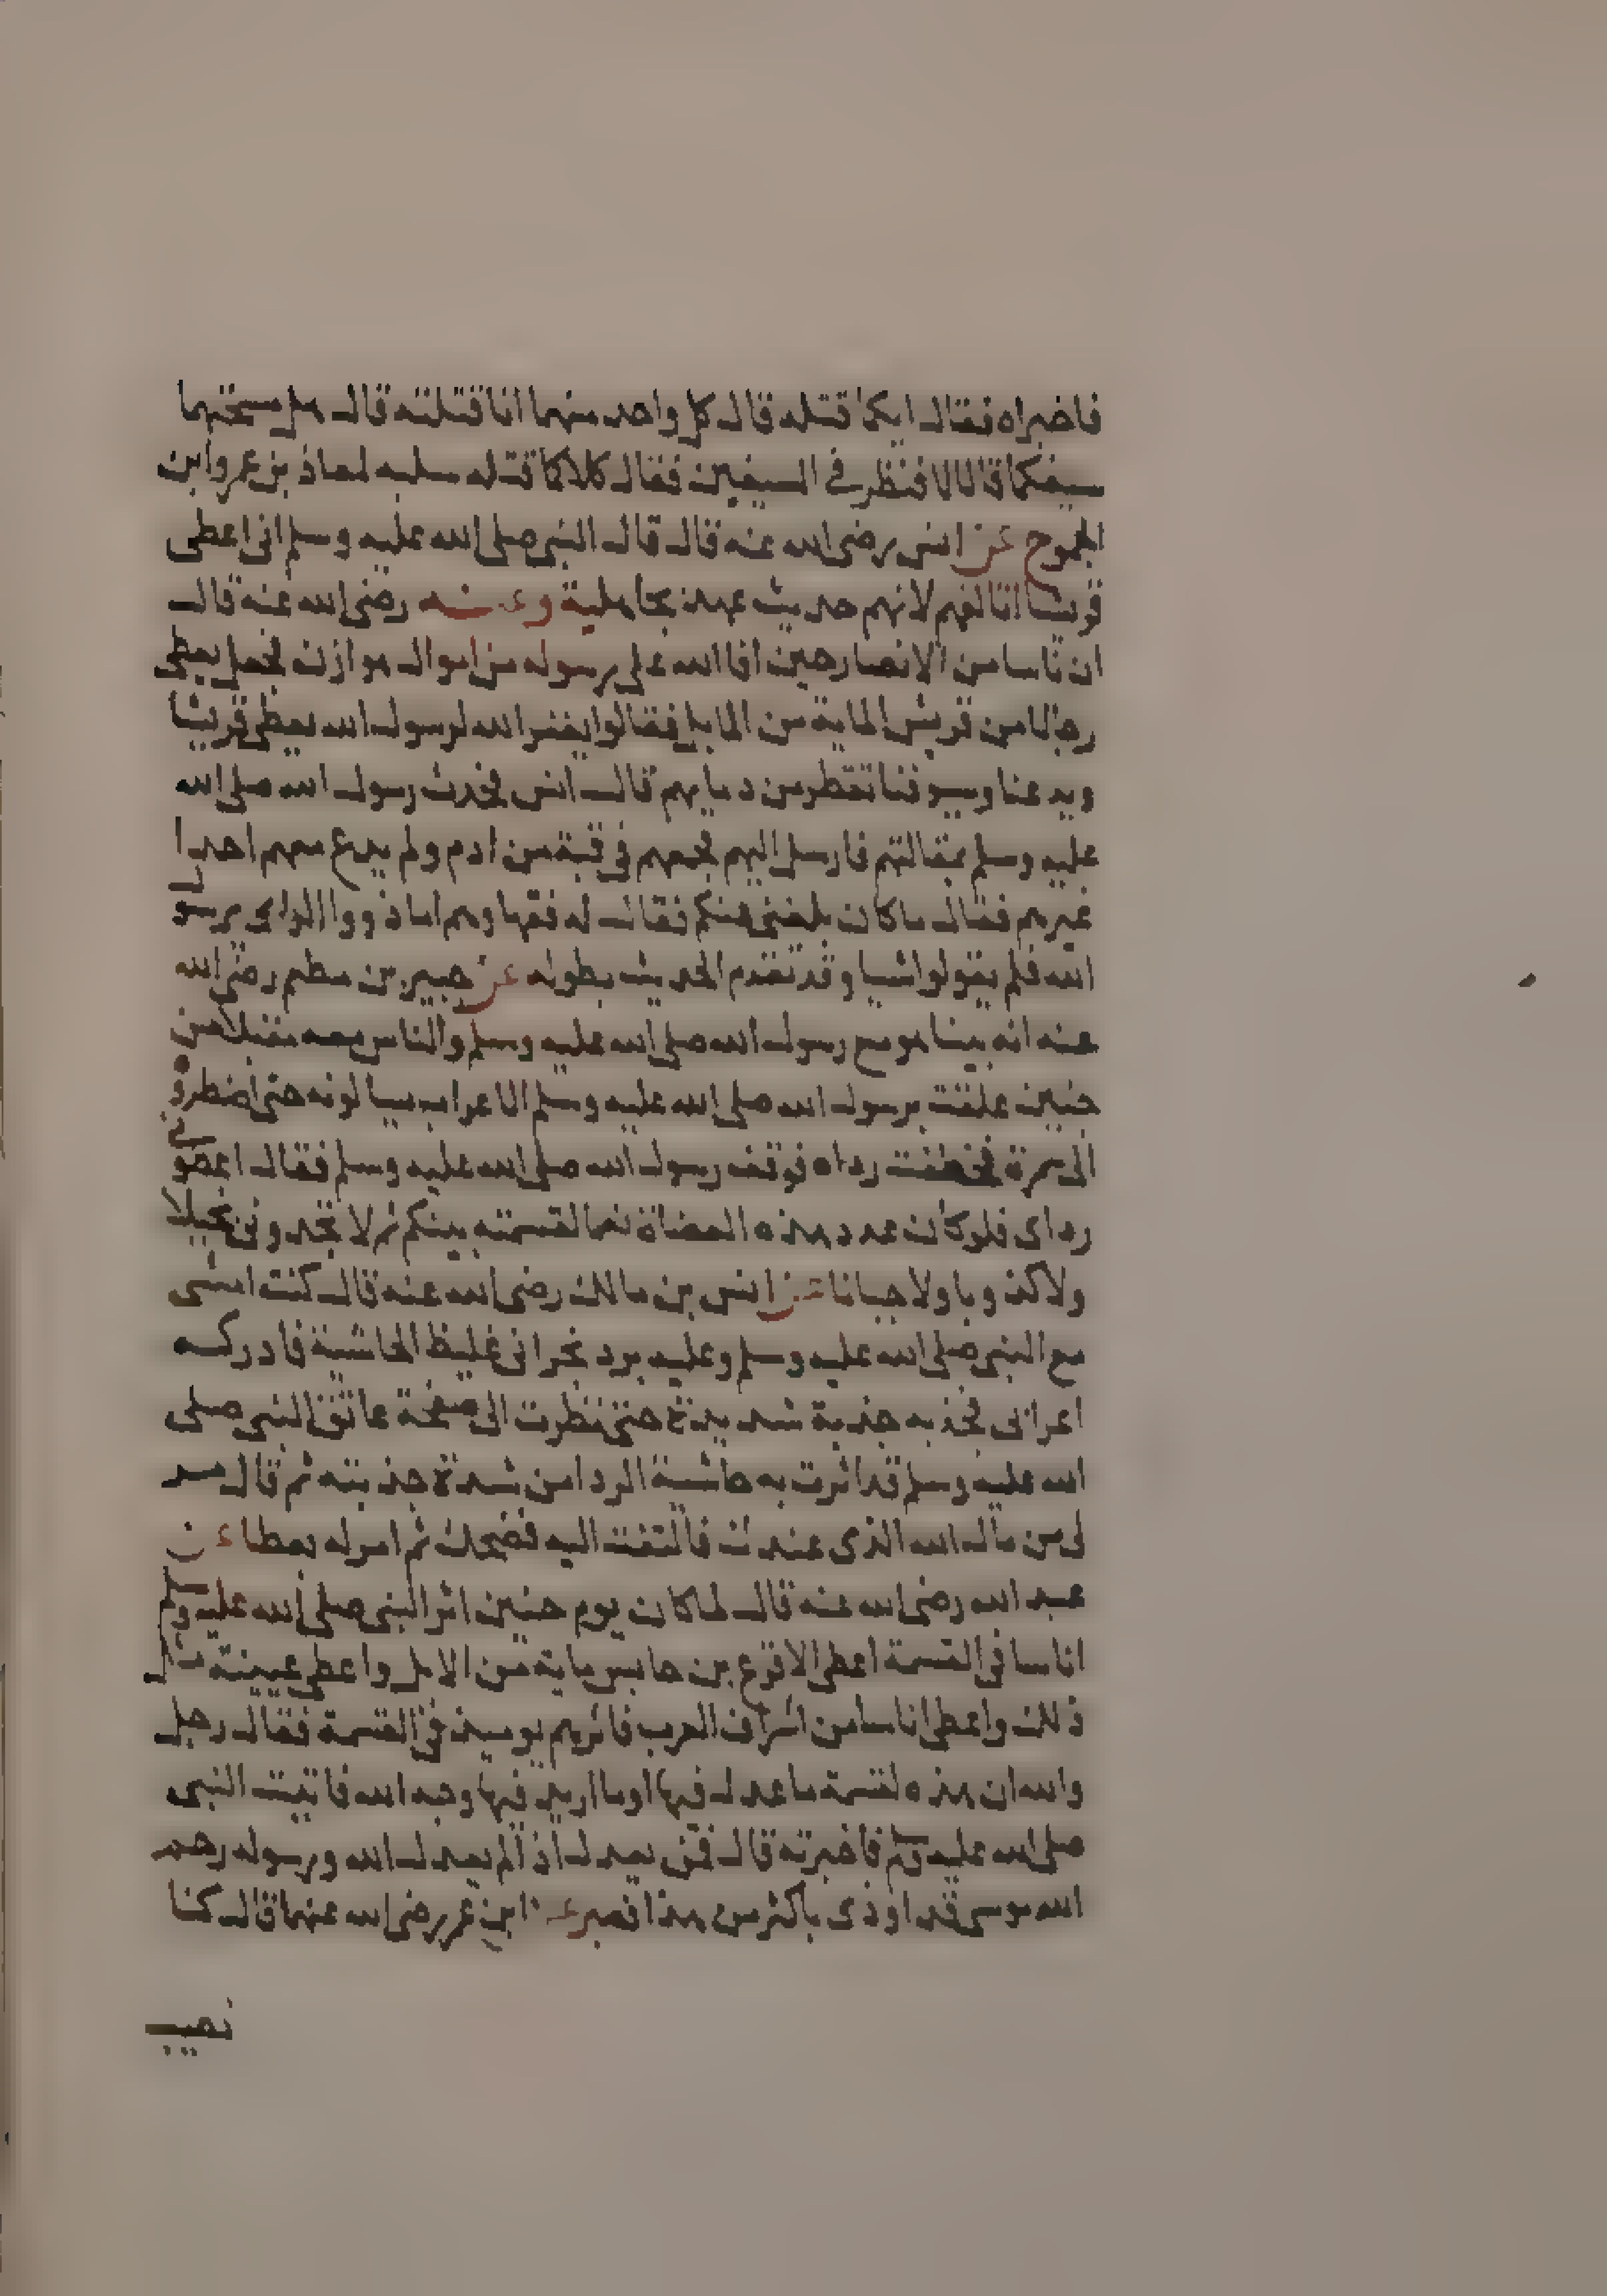 فاخبراه فقال ايكما قتله قال كل واحد منهما انا قتلته قال هل مسحتما
سيفكما قالا لا فنظر في السيفين فقال كلاكما قتله سلبه لمعاذ بن عمرو ابن
الجموح عن انس رضى الله عنه قال قال النبي صلى الله عليه وسلم انى اعطى
قريشا اتالفهم لانهم حديث عهد بجاهلية وعنه رضى الله عنه قال
ان ناسا من الانصار حين افا الله على رسوله من اموال هوازن فجعل يعطى
رجالا من قريش الماية من الابل فقالوا يغفر الله لرسول الله يعطى قريشا
ويدعنا وسيوفنا تقطر من دمايهم قال انس فحدث رسول الله صلى الله
عليه وسلم بمقالتهم فارسل اليهم فجمعهم في قبة من ادم ولم يدع معهم احدا
غيرهم فقال ما كان بلغنى عنكم فقال له فقهاوهم اما ذووا الراى يرسول
الله فلم يقولوا شيا وقد تقدم الحديث بطوله عن جبير بن مطعم رضى الله
عنه انه بينا هو مع رسول الله صلى الله عليه وسلم والناس معه مقبلا من
حنين علقت برسول الله صلى الله عليه وسلم الاعراب يسالونه حتى اضطروه
الى سمرة فخطفت رداه فوقف رسول الله صلى الله عليه وسلم فقال اعطونى
رداى فلو كان عدد هذه العضاة نعما لقسمته بينكم ثم لا تجدونى بخيلا
ولا كذوبا ولا جبانا عن انس بن مالك رضى الله عنه قال كنت امشى
مع النبي صلى الله عليه وسلم وعليه برد نجرانى غليظ الحاشية فادركه
اعرابى فجذبه جذبة شديدة حتى نظرت الى صفحة عاتق النبي صلى
الله عليه وسلم قد اثرت به حاشية الردا من شدة جذبته ثم قال مر
لى من مال الله الذى عندك فالتفت اليه فضحك ثم امر له بعطا عن
عبد الله رضى الله عنه قال لما كان يوم حنين اثر النبي صلى الله عليه وسلم
اناسا في القسمة اعطى الاقرع بن حابس ماية من الابل واعطى عيينة مثل
ذلك واعطى اناسا من اشراف العرب فاثرهم يوميذ في القسمة فقال رجل
والله ان هذه لقسمة ما عدل فيها او ما اريد فيها وجه الله فاتيت النبي
صلى الله عليه وسلم فاخبرته قال فمن يعدل اذا لم يعدل الله ورسوله رحم
الله موسى قد اوذى باكثر من هذا فصبر عن ابن عمر رضى الله عنهما قال كنا
نصيب